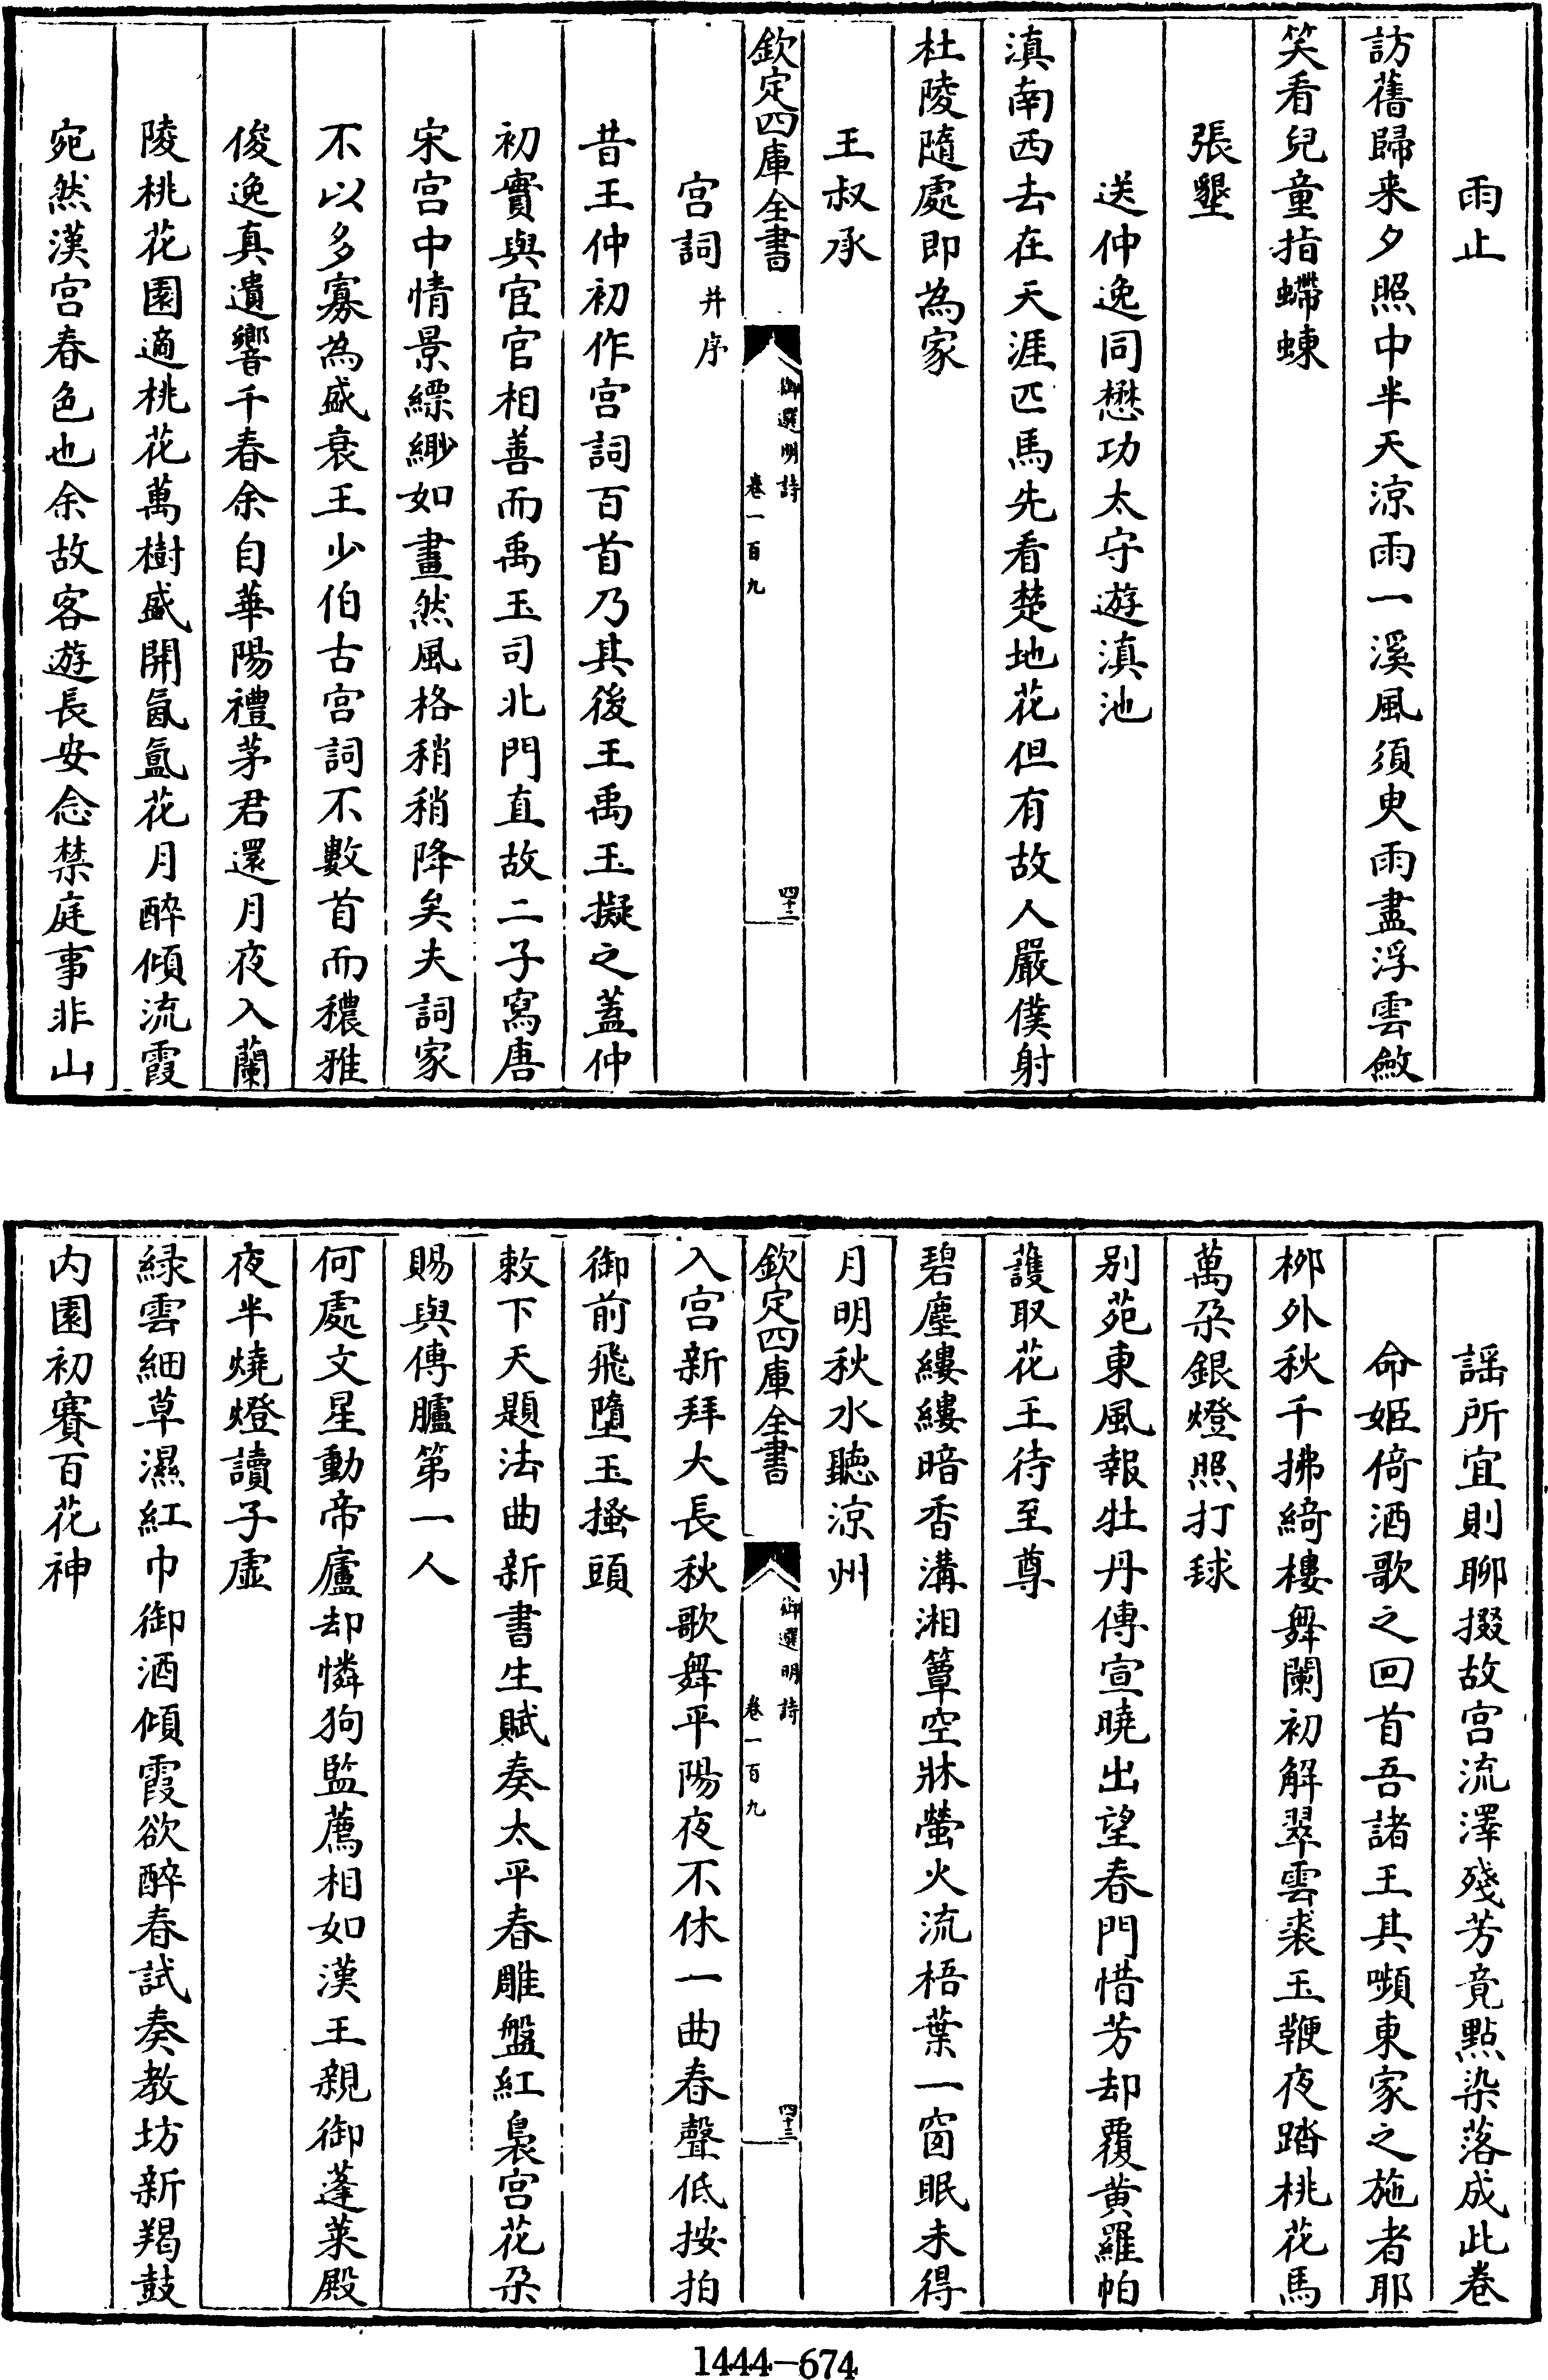 雨止
訪舊歸来夕照中半天涼雨一溪風須臾雨盡浮雲斂
笑看兒童指螮蝀
張墾
送仲逸同懋功太守遊滇池
滇南西去在天涯匹馬先看楚地花但有故人嚴僕射
杜陵隨處即為家
王叔承
欽定四庫全書
御選明詩
卷一百九
四十二
宫詞并序
昔王仲初作宫詞百首乃其後王禹玉擬之蓋仲
初實與宦官相善而禹玉司北門直故二子寫唐
宋宫中情景縹緲如畫然風格稍稍降矣夫詞家
不以多寡為盛衰王少伯古宫詞不數首而穠雅
俊逸真遺響千春余自華陽禮茅君還月夜入蘭
陵桃花園適桃花萬樹盛開氤氲花月醉傾流霞
宛然漢宫春色也余故客遊長安念禁庭事非山
謡所宜則聊掇故宫流澤殘芳竟點染落成此卷
命姬倚酒歌之回首吾諸王其嚬東家之施者耶
栁外秋千拂綺樓舞闌初解翠雲裘玉鞭夜踏桃花馬
萬朶銀燈照打毬
别苑東風報牡丹傳宣曉出望春門惜芳却覆黄羅帕
護取花王待至尊
碧塵縷縷暗香溝湘簟空牀螢火流梧葉一窗眠未得
月明秋水聽涼州
欽定四庫全書
御選明詩
卷一百九
四十三
入宫新拜大長秋歌舞平陽夜不休一曲春聲低按拍
御前飛墮玉搔頭
敕下天題法曲新書生賦奏太平春雕盤紅裊宫花朶
賜與傳臚第一人
何處文星動帝廬却憐狗監薦相如漢王親御蓬萊殿
夜半燒燈讀子虚
緑雲細草濕紅巾御酒傾霞欲醉春試奏教坊新羯鼓
内園初賽百花神
1444-674